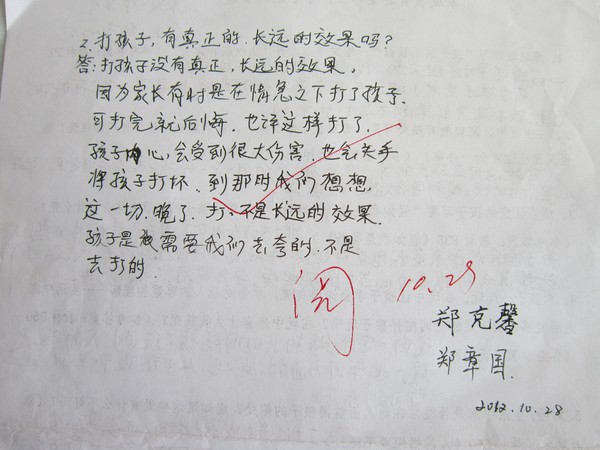 2. 打孩子，有真正的、长远的效果吗？
答：打孩子没有真正，长远的效果，
因为家长有时是在情急之下打了孩子.
可打完就后悔. 也许这样打了.
孩子内心，会受到很大伤害. 也会失手
将孩子打坏. 到那时我们想想.
这一切. 晚了. 打、不是长远的效果.
孩子是需要我们去夸的. 不是
去打的.
阅 10.29
郑克馨
郑章国.
2012.10.28